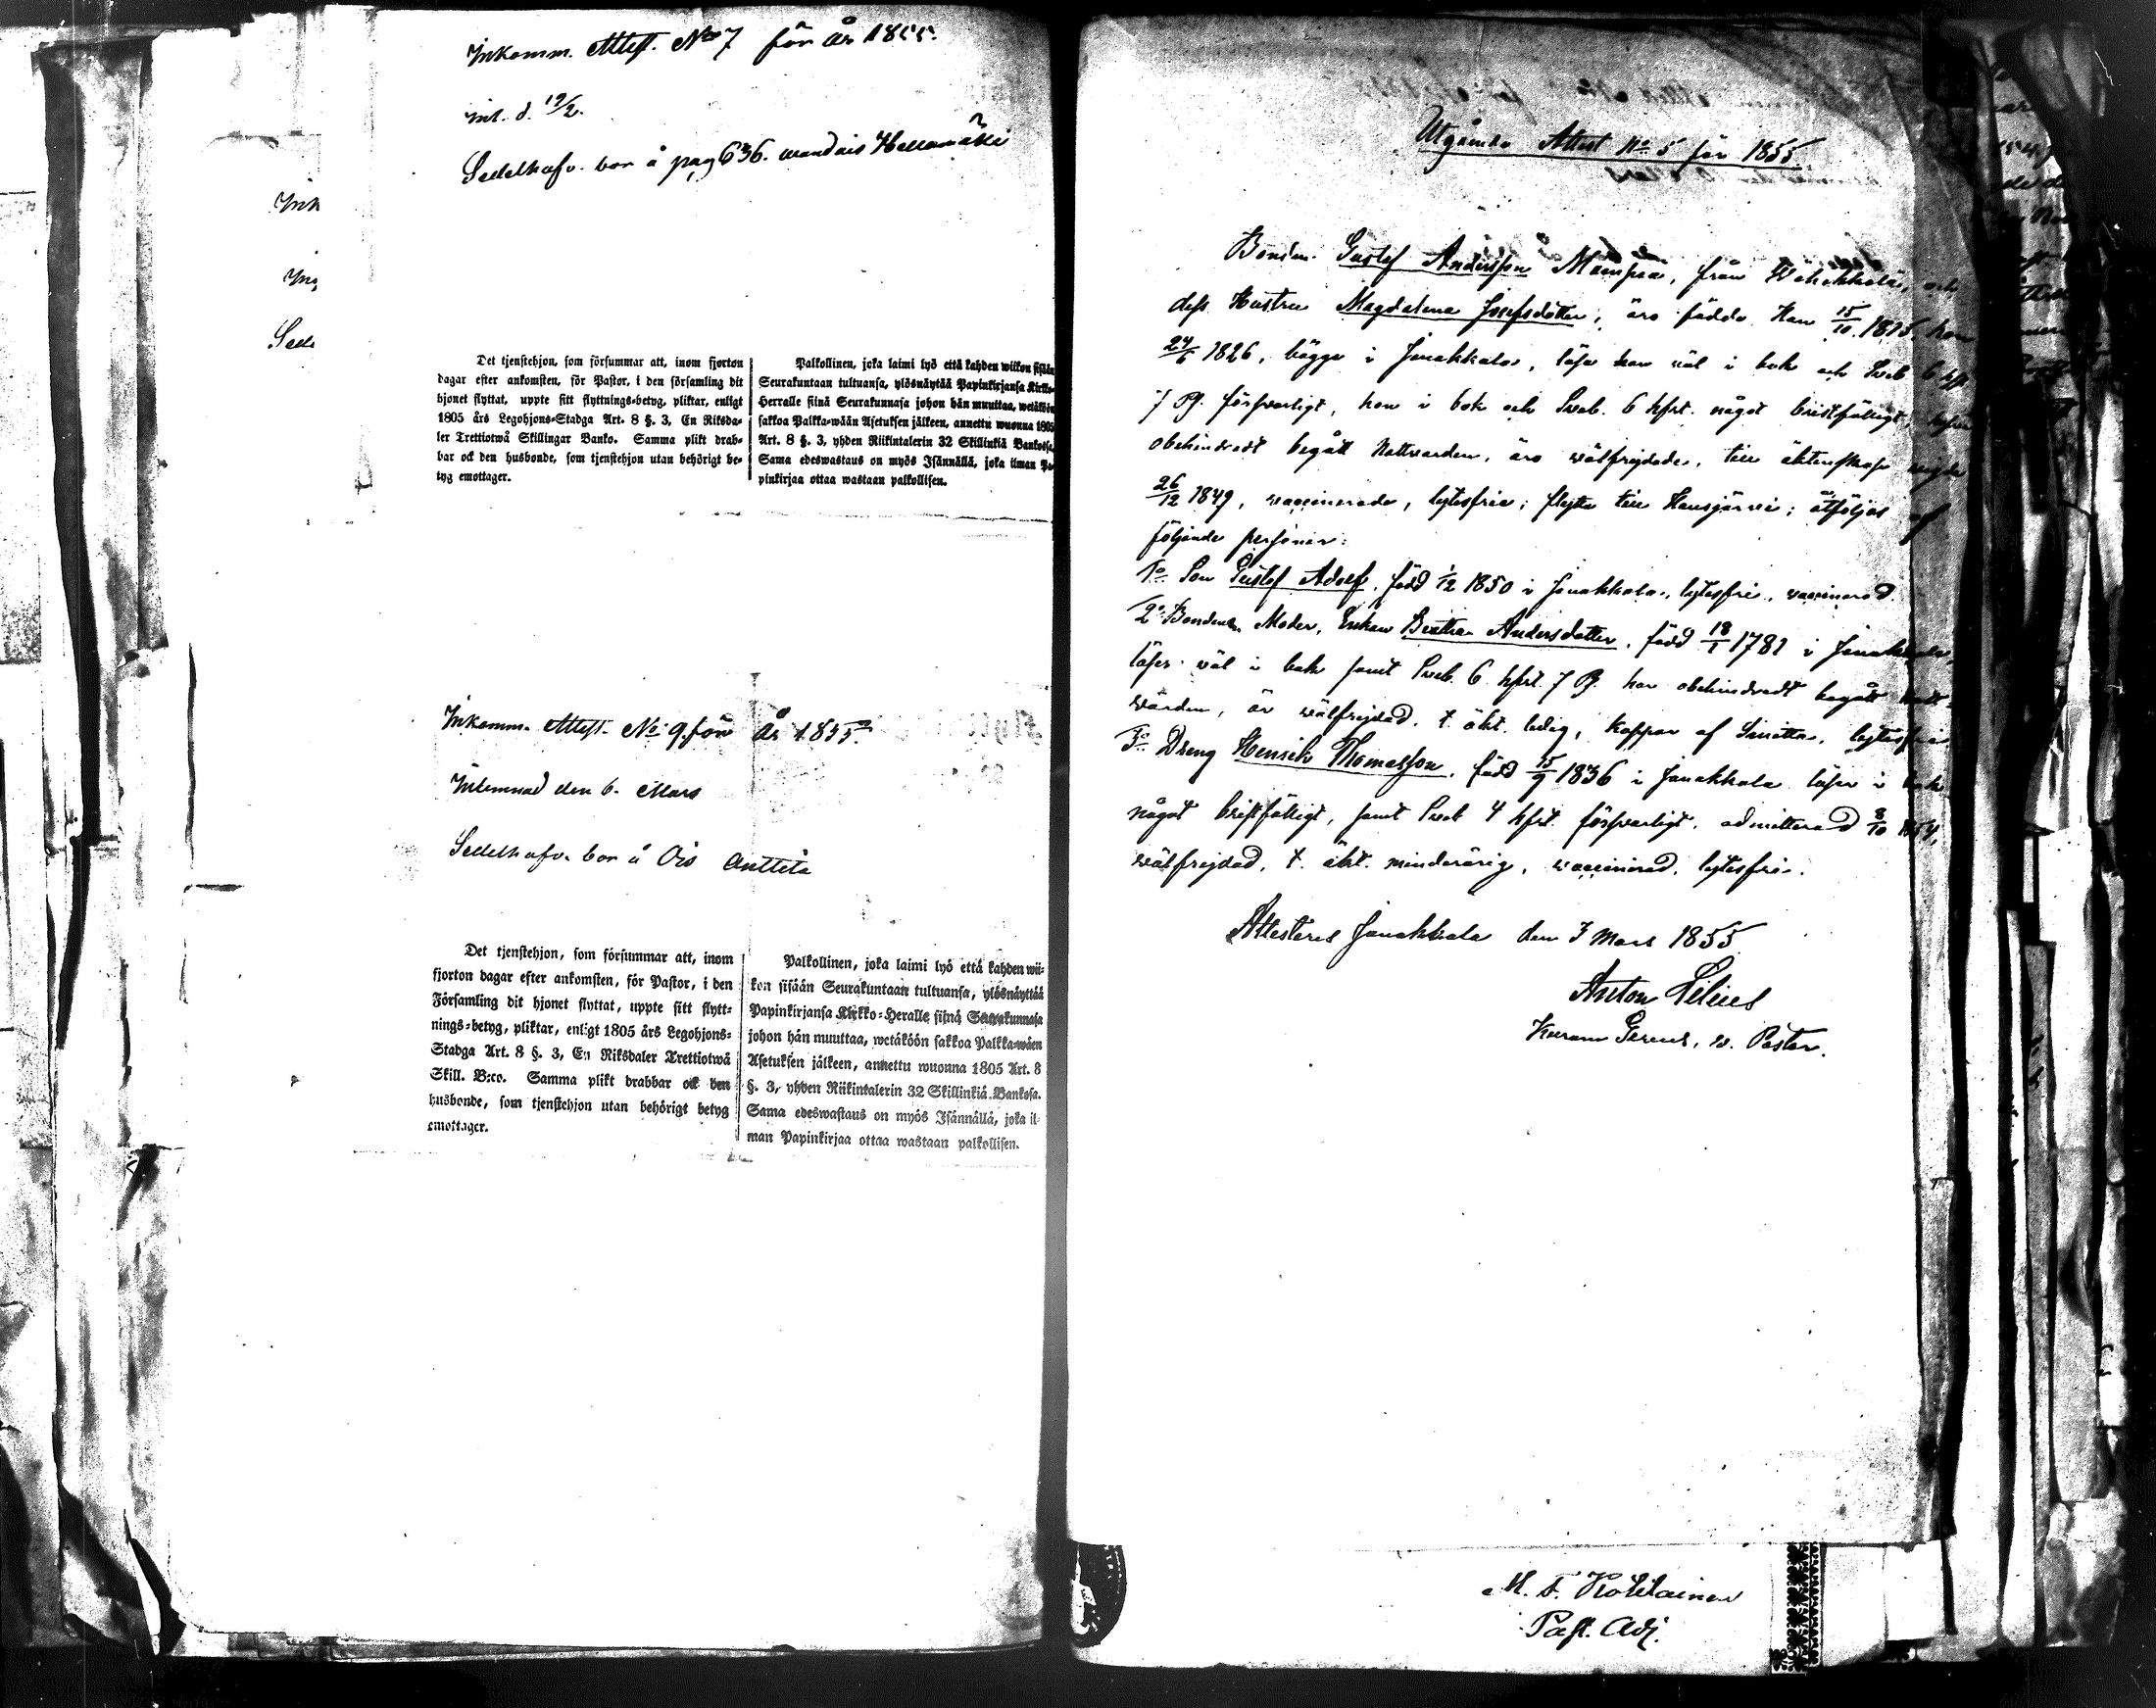 Inkomm. Attest. No 7 för år 1855.
inl. d. 19/2.
Sedelhafv. bor å pag 636.
Ink
Sede
Det tjenstehjon, som försummar att, inom fjorton
dagar efter ankomsten, för Pastor, i den församling dit
hjonet flyttat, uppte sitt flyttnings-betyg, pliktar, enligt
1805 års Legohjons-Stadga Art. 8 §. 3, En Riksda-
ler Trettiotwå Skillingar Banko. Samma plikt drab-
bar ock den husbonde, som tjenstehjon utan behörigt be-
tyg emottager.
Palkollinen, joka laimi lyö että kahden wiikon sisään
Seurakuntaan tultuansa, ylösnäytää Papinkirjansa Kirko-
Herralle siinä Seurakunnasa johon hän muuttaa, wetäköön
sakkoa Palkka-wään Asetuksen jälkeen, annettu wuonna 1805
Art. 8 §. 3, yhden Riikintalerin 32 Skillinkiä Bankosa.
Sama edeswastaus on myös Isännällä, joka ilman Pa-
pinkirjaa ottaa wastaan palkollisen.
Inkomm. Attest. No 9 för år 1855.
Inlemnad den 6. Mars
Sedelhafv. bor å Ois Anttila
Det tjenstehjon, som försummar att, inom
fjorton dagar efter ankomsten, för Pastor, i den
Församling dit hjonet flyttat, uppte sitt flytt-
nings-betyg, pliktar, enligt 1805 års Legohjons-
Stadga Art. 8 §. 3, En Riksdaler Trettiotwå
Skill. B:co. Samma plikt drabbar ock den
husbonde, som tjenstehjon utan behörigt betyg
emottager.
Palkollinen, joka laimi lyö että kahden wii-
kon sisään Seurakuntaan tultuansa, ylösnäyttää
Papinkirjansa Kirkko-Heralle siinä Seurakunnasa
johon hän muuttaa, wetäköön sakkoa Palkka-wäen
Asetuksen jälkeen, annettu wuonna 1805 Art. 8
§. 3, yhden Riikintalerin 32 Skillinkiä Bankosa.
Sama edeswastaus on myös Isännällä, joka il-
man Papinkirjaa ottaa wastaan palkollisen.
Utgående Attest No 5 för 1855.
Bonden Gustef Andersson från och
dess Hustru Magdalena Josefsdotter, äro födde Han 15/10 hon
24/6 1826, bägge i Janakkala, läser han väl i bok och Sveb. 6 hfst
7 försvarligt, hon i bok och Sveb. 6 hfst. något bristfälligt,
obehindradt begått Nattvarden, äro välfrejdade, till äktenskap vigde
26/12 1849, vaccinerade, lytesfria; flytta till Hausjärvi; åtföljas af
följande personer:
1o Son Gustef Adolf, född 1/12 1850 i Janakkala, lytesfri, vaccinerad.
2o Bondens Moder, Enkan Beata Andersdotter, född 18/1 1781 i Janakkala,
läser väl i bok samt Sveb. 6 hfst. 7 har obehindradt begått Natt-
varden, är välfrejdad, t. äkt. ledig, lytesfri.
3o Dreng Henrik Thomasson, född 15/9 1836 i Janakkala läser i bok
något bristfälligt, samt Sveb 4 hfst. försvarligt, admitterad 8/10 1854,
välfrejdad, t. äkt. minderårig, vaccinerad, lytesfri.
Attesteras Janakkala den 3 Mars 1855
Anton Lilius
v. Pastor.
Past. Adj.